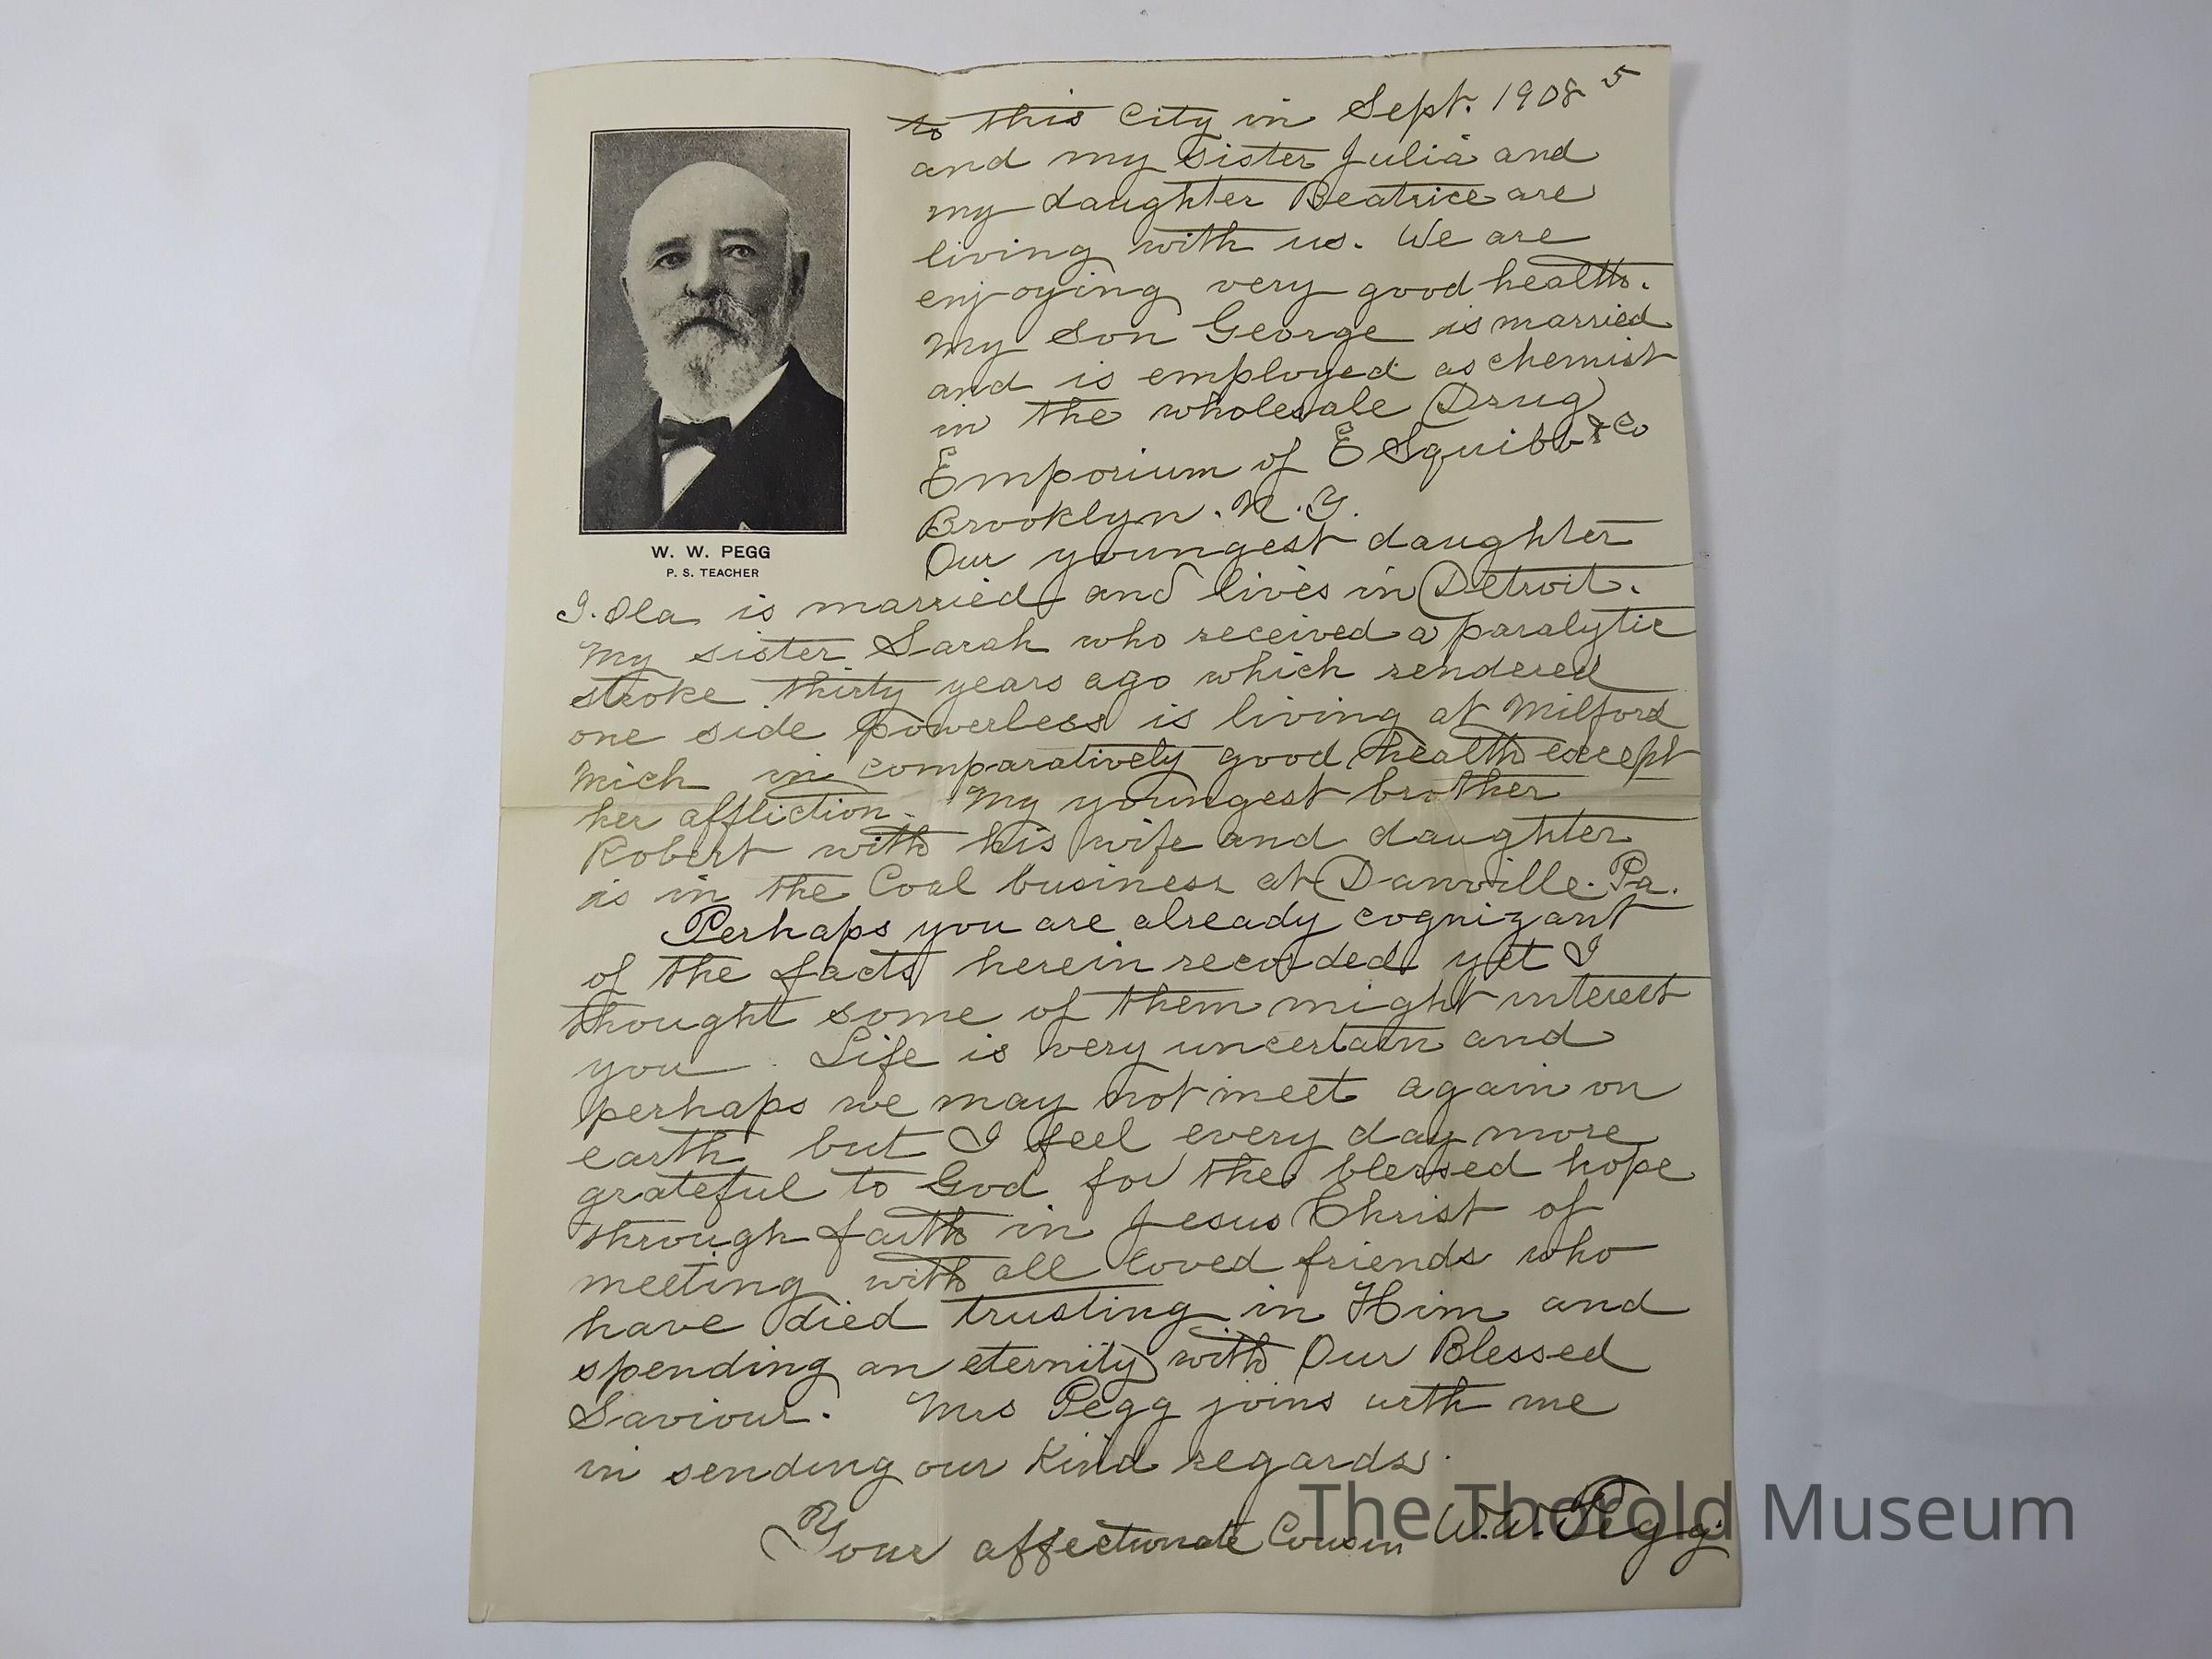 5
to this City in Sept. 1908
and my sister Julia and
my daughter Beatrice are
living with us. We are
enjoying very good health.
My son George is married
and is employed as chemist
in the wholesale Drug
Emporium of E Squibb & Co
Brooklyn. N. Y.
W. W. PEGG
P. S. TEACHER
Our youngest daughter
I. Ola is married and lives in Detroit.
My sister Sarah who received a paralytic
stroke thirty years ago which rendered
one side powerless is living at Milford
Mich in comparatively good health except
her affliction. My youngest brother
Robert with his wife and daughter
is in the Coal business at Danville. Pa.
Perhaps you are already cognizant
of the facts herein recorded yet I
thought some of them might interest
you. Life is very uncertain and
perhaps we may not meet again on
earth but I feel every day more
grateful to God for the blessed hope
through faith in Jesus Christ of
meeting with all loved friends who
have died trusting in Him and
spending an eternity with Our Blessed
Saviour. Mrs Pegg joins with me
in sending our Kind regards.
Your affectionate Cousin W. W. Pegg
The Thorold Museum